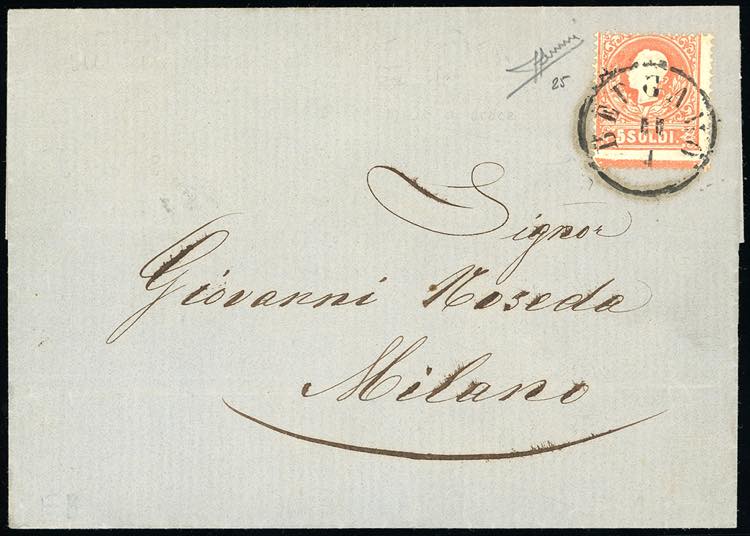 25
5 SOLDI.
BERGAMO
11
1
Signor
Giovanni Noseda
Milano